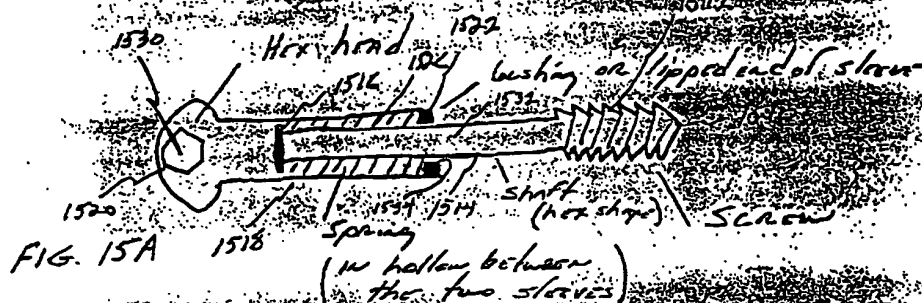 1530
Hex head
1522
1516
bushing or lipped end of sleeve
1532
1520
1518
Spring
1534
1514
shaft
(hex shape)
SCREW
FIG. 15A
(in hollow between
the two sleeves)